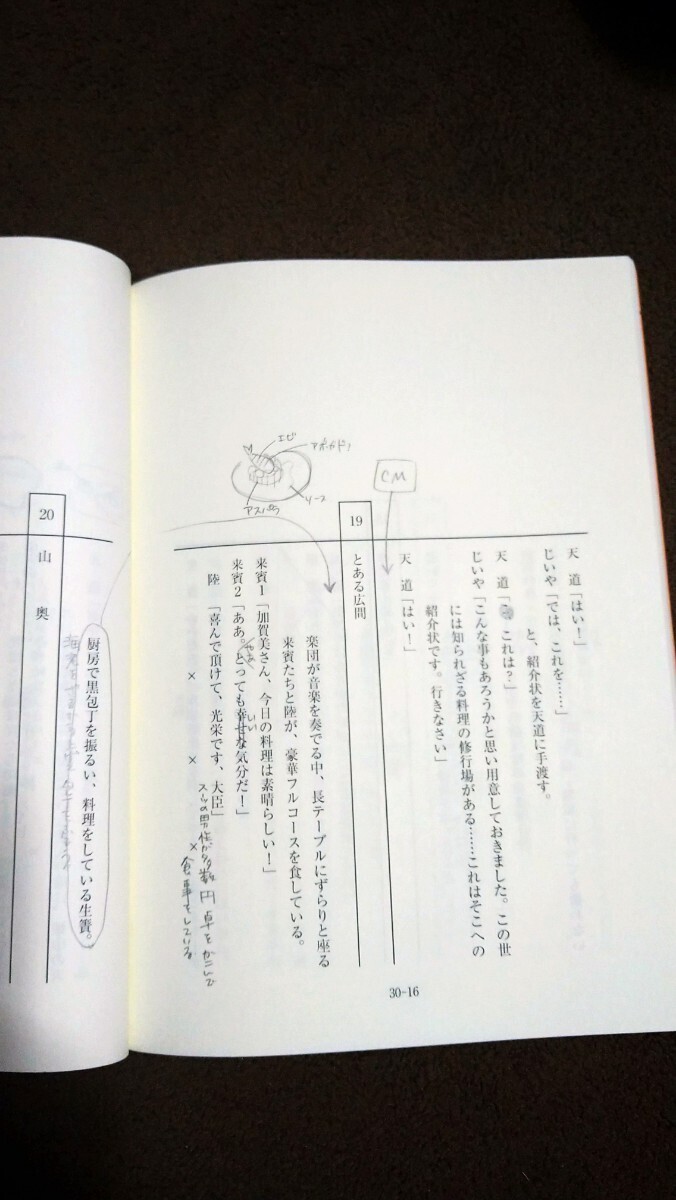 天　道「はい！」
じいや「では、これを……」
と、紹介状を天道に手渡す。
天　道「これは？」
じいや「こんな事もあろうかと思い用意しておきました。この世
には知られざる料理の修行場がある……これはそこへの
紹介状です。行きなさい」
天　道「はい！」
CM
19
とある広間
楽団が音楽を奏でる中、長テーブルにずらりと座る
来賓たちと陸が、豪華フルコースを食している。
来賓1「加賀美さん、今日の料理は素晴らしい！」
来賓2「ああ。とっても幸せな気分だ！」
いい
陸　「喜んで頂けて、光栄です、大臣」
×　×　×
スーツの男性が多数 円卓をかこんで
食事をしている
エビ
アボカド
アスパラ
ソース
30-16
厨房で黒包丁を振るい、料理をしている生簀。
20
山　奥